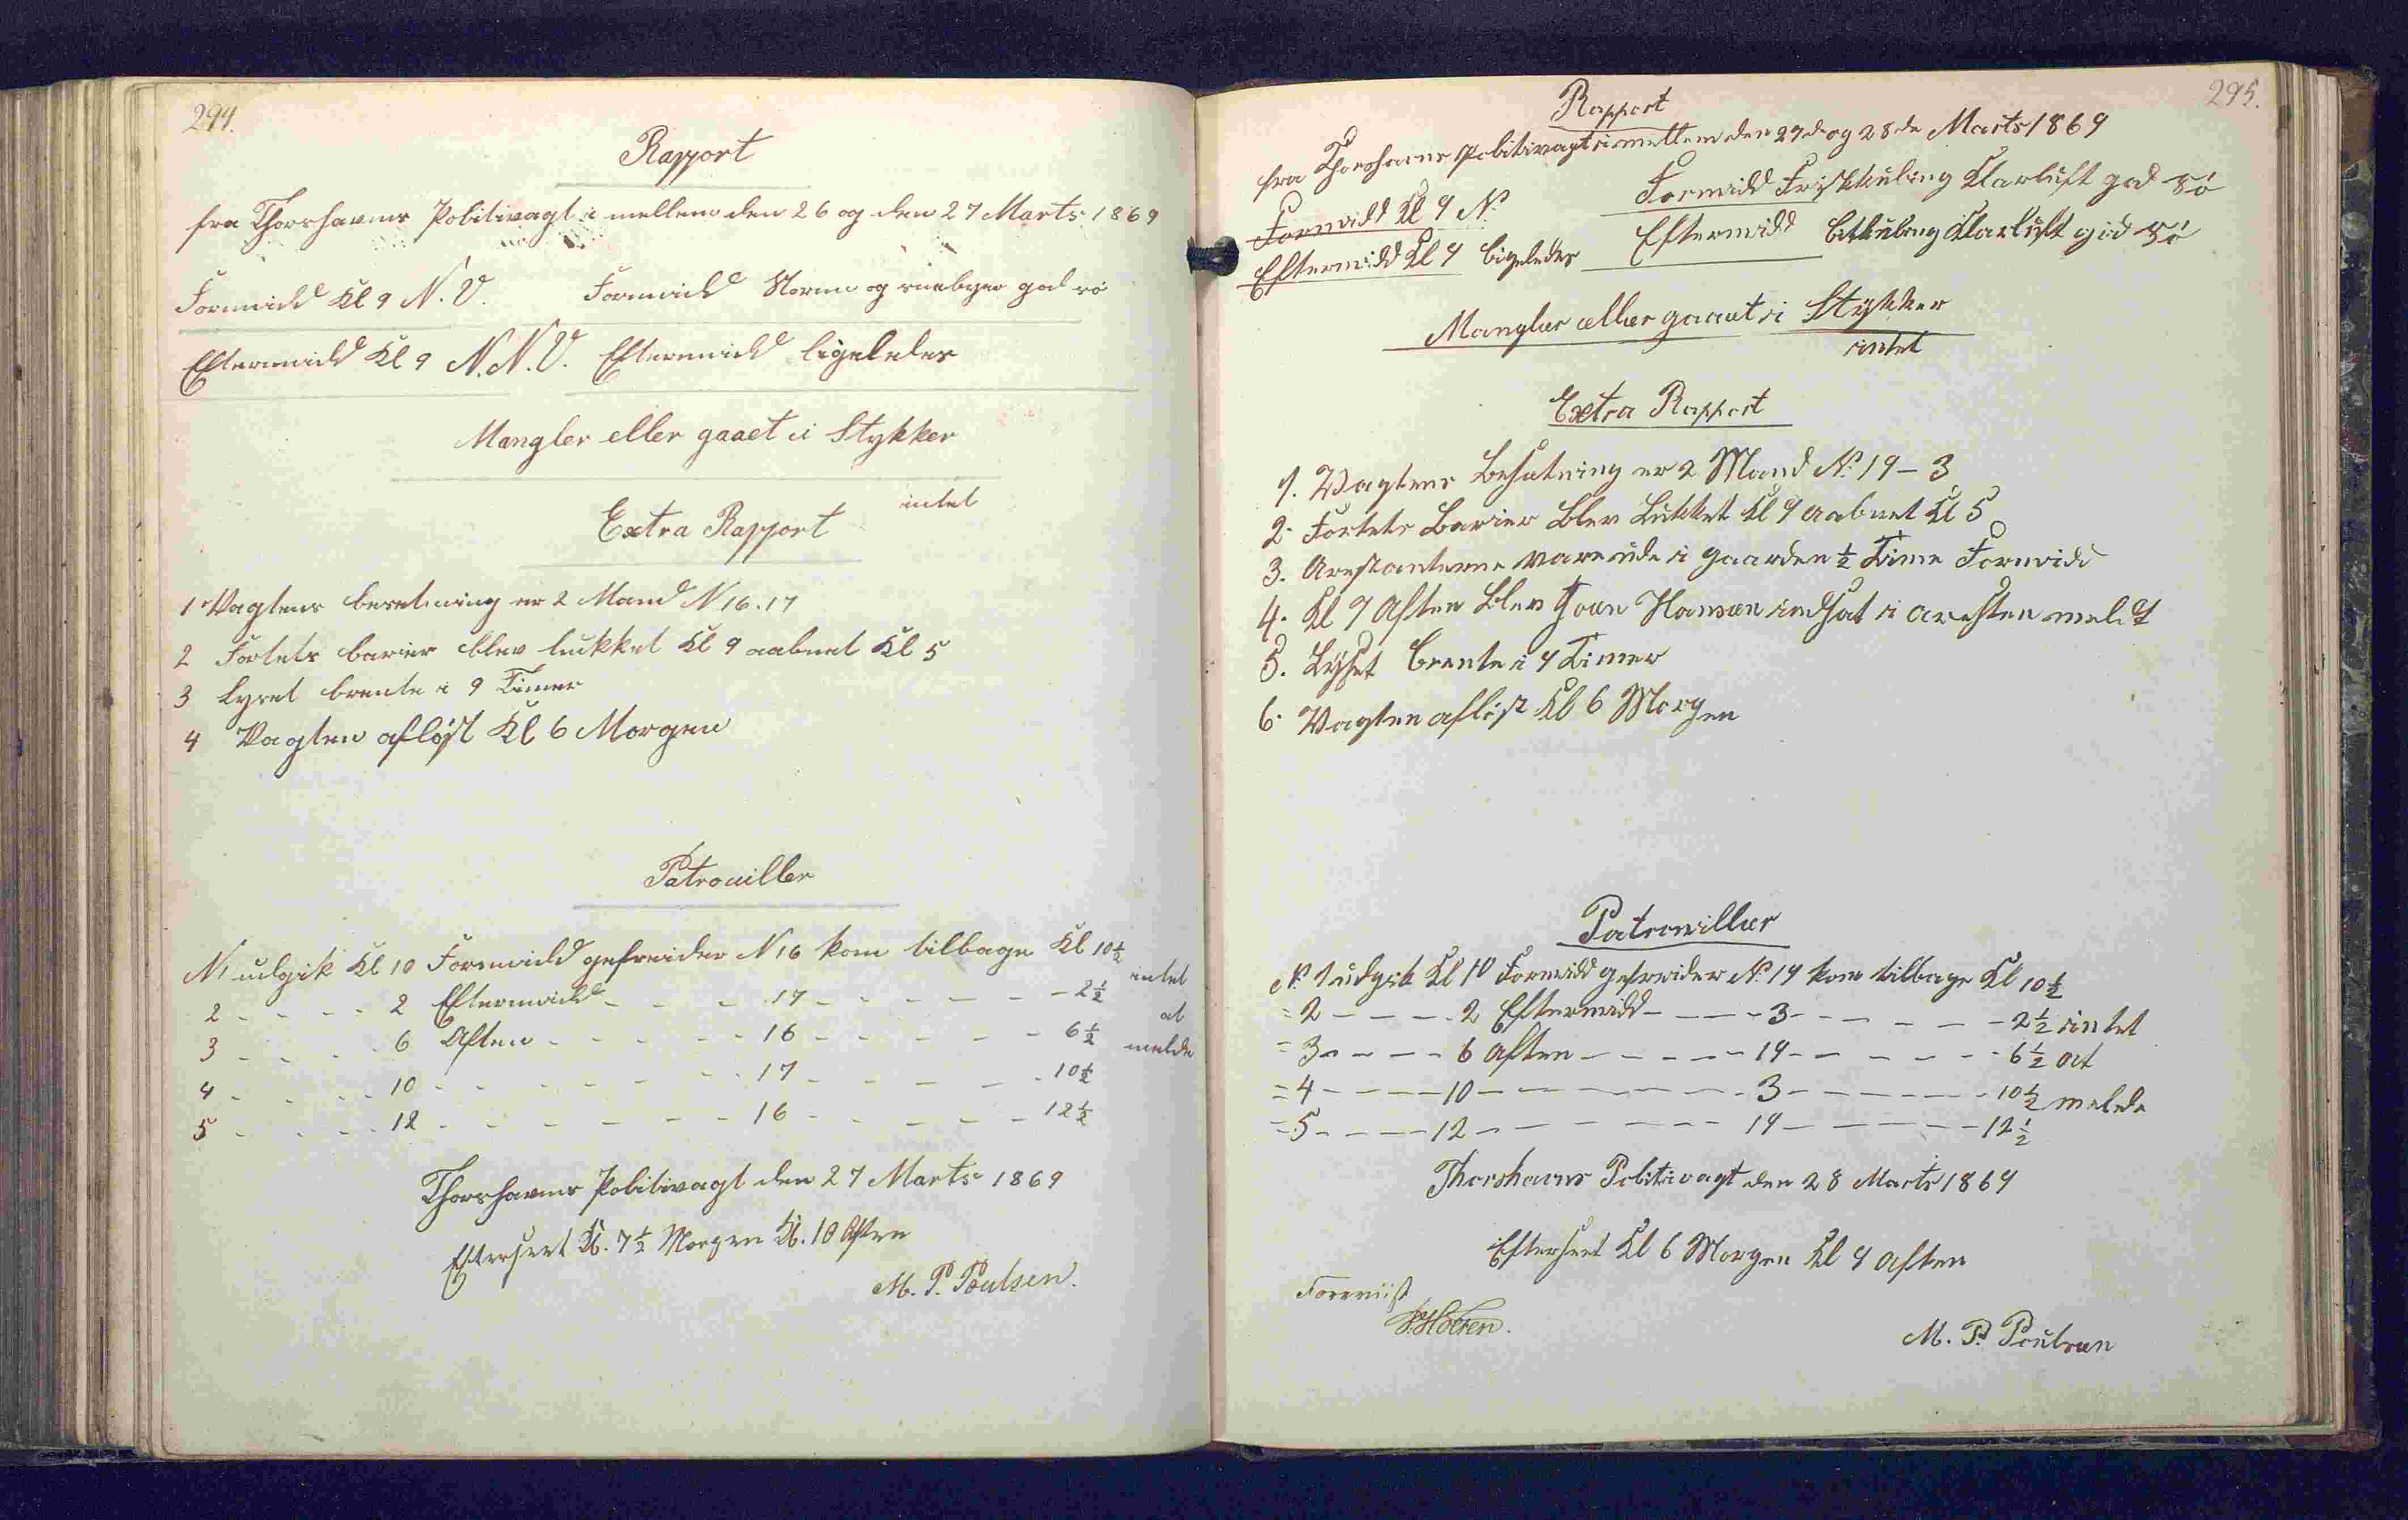 294.
Rapport
fra Thorshavns Politivagt i mellem den 26 og den 27 Marts 1869
Formidd Kl 9 N. V. Formidd Storm og snebyer god sö
Eftermidd Kl 9 N. N. V. Eftermidd ligeledes
Mangler eller gaaet i Stykker
intet
Extra Rapport
1 Vagtens besetning er 2 Mand N 16. 17
2 Fortets barier blev lukket Kl 9 aabnet Kl 5
3 Lyset brente i 9 Timer
4 Vagten aflöst Kl 6 Morgen
Patrouiller
N 1 udgik Kl 10 Formidd gefreider N 16 kom tilbage Kl 10½ intet
2 - - - - 2 Eftermidd - - - - 17 - - - - - - 2½ at
3 - - - - 6 Aften - - - - - 16 - - - - - 6½ melde
4 - - - - 10 - - - - - - - 17 - - - - - 10½
5 - - - - 12 - - - - - - - 16 - - - - - 12½
Thorshavns Politivagt den 27 Marts 1869
Efterseet Kl. 7½ Morgen Kl. 10 Aften
M. P. Poulsen.
295.
Rapport
fra Thorshavns Politivagt i mellem den 27de og 28de Marts 1869
Formidd Kl 9 N. Formidd Friskkuling Klarluft god sö
Eftermidd Kl 9 ligeledes Eftermidd litkuling Klarluft god sö
Manglar ellar gaaut i Stykker
intet
Extra Rapport
1. Vagtens Besatning er 2 Mand N: 19 - 3
2. Fortets Barier blev Lukket Kl 9 aabnet Kl 5
3. Arestanterne vare ude i gaarden ½ Time Formidd
4. Kl 9 Aften blev Joen Hansen indsat i aresten meldt
5. Lyset brente i 9 Timer
6. Vagten aflöst Kl 6 Morgen
Patrouillar
N: 1 udgik Kl 10 Formidd gefreider N: 19 kom tilbage Kl 10½
= 2 - - - - 2 Eftermidd - - - - 3 - - - - - - 2½ intet
= 3 - - - - 6 Aften - - - - - 19 - - - - - - 6½ at
= 4 - - - - 10 - - - - - - - 3 - - - - - - 10½ melde
= 5 - - - - 12 - - - - - - - 19 - - - - - - 12½
Thorshavns Politivagt den 28 Marts 1869
Efterseet Kl 6 Morgen Kl 9 Aften
Foreviist
M. P. Poulsen